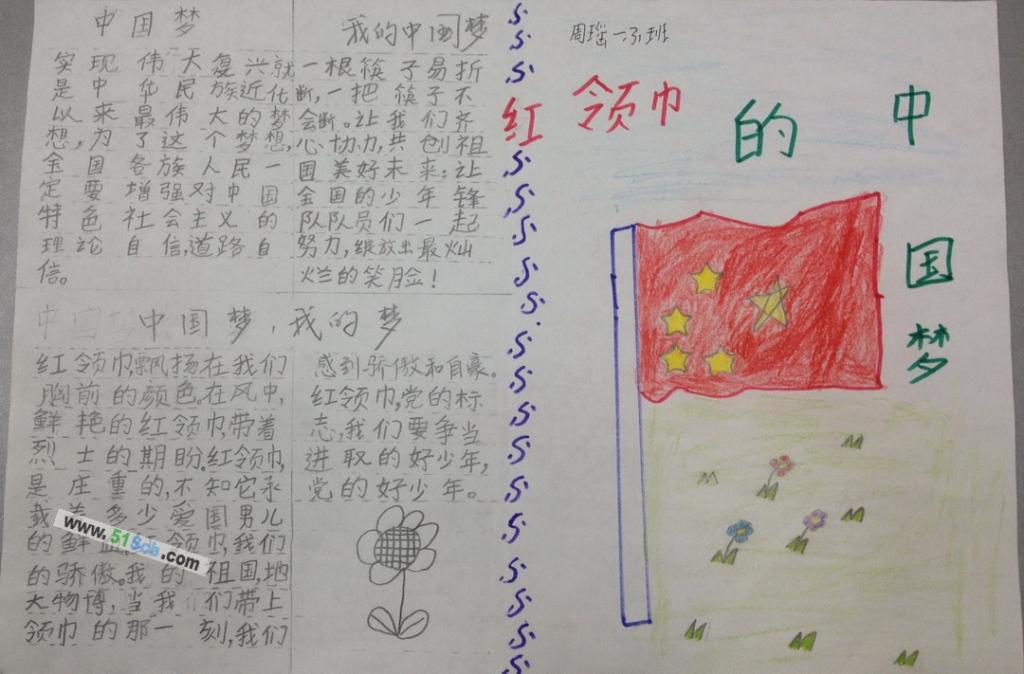 中国梦
实现伟大复兴就
是中华民族近代
以来最伟大的梦
想,为了这个梦想,
全国各族人民一
定要增强对中国
特色社会主义的
理论自信,道路自
信。
我的中国梦
一根筷子易折
断,一把筷子不
会断。让我们齐
心协力,共创祖
国美好未来;让
全国的少年锋
队队员们一起
努力,绽放出最灿
烂的笑脸!
中国梦,我的梦
红领巾,飘扬在我们
胸前的颜色。在风中,
鲜艳的红领巾,带着
烈士的期盼。红领巾,
是庄重的,不知它承
载着多少爱国男儿
的鲜血。红领巾,我们
的骄傲。我的祖国,地
大物博,当我们带上
领巾的那一刻,我们
感到骄傲和自豪。
红领巾,党的标
志,我们要争当
进取的好少年,
党的好少年。
www.51Scb.com
周瑶
红领巾的中国梦